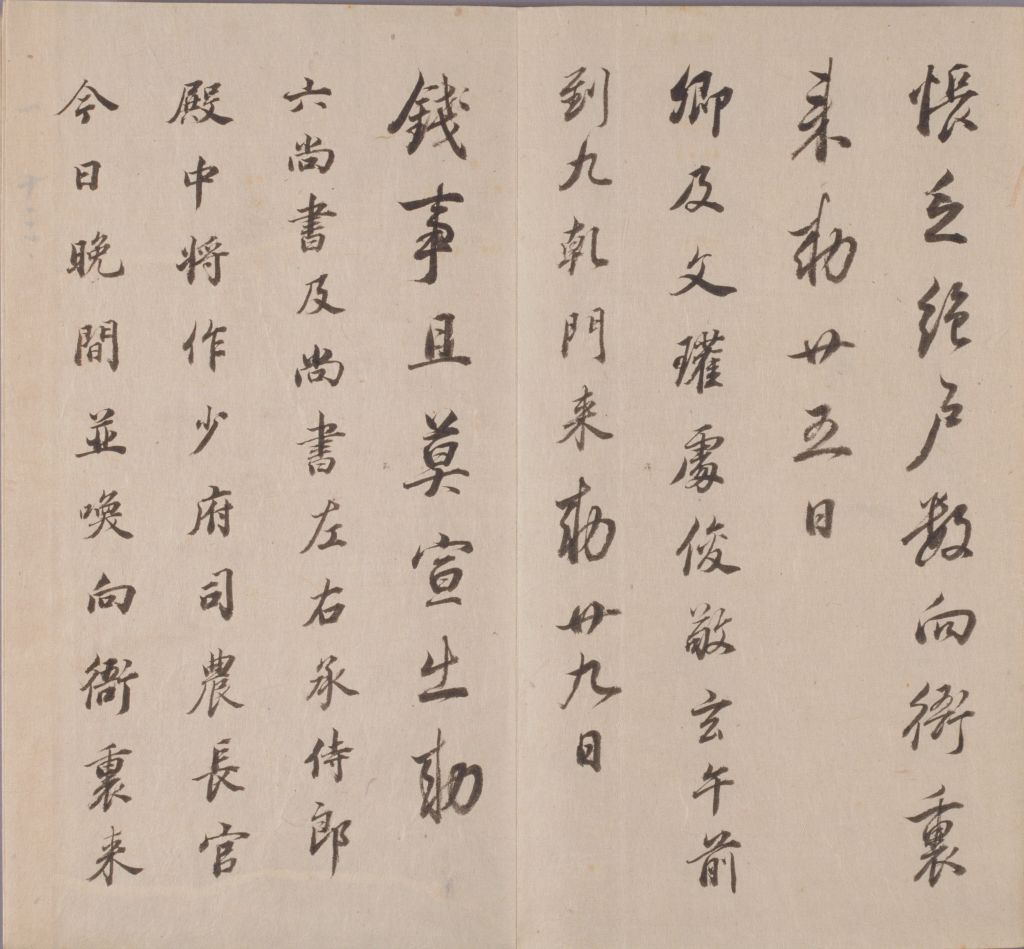 悵乏絕戶數向衙裏
来勅廿五日
卿及文瓘處俊敬玄午前
到九乹門来勅廿九日
錢事且莫宣出勅
六尚書及尚書左右承侍郎
殿中将作少府司農長官
今日晚間並喚向衙裏来